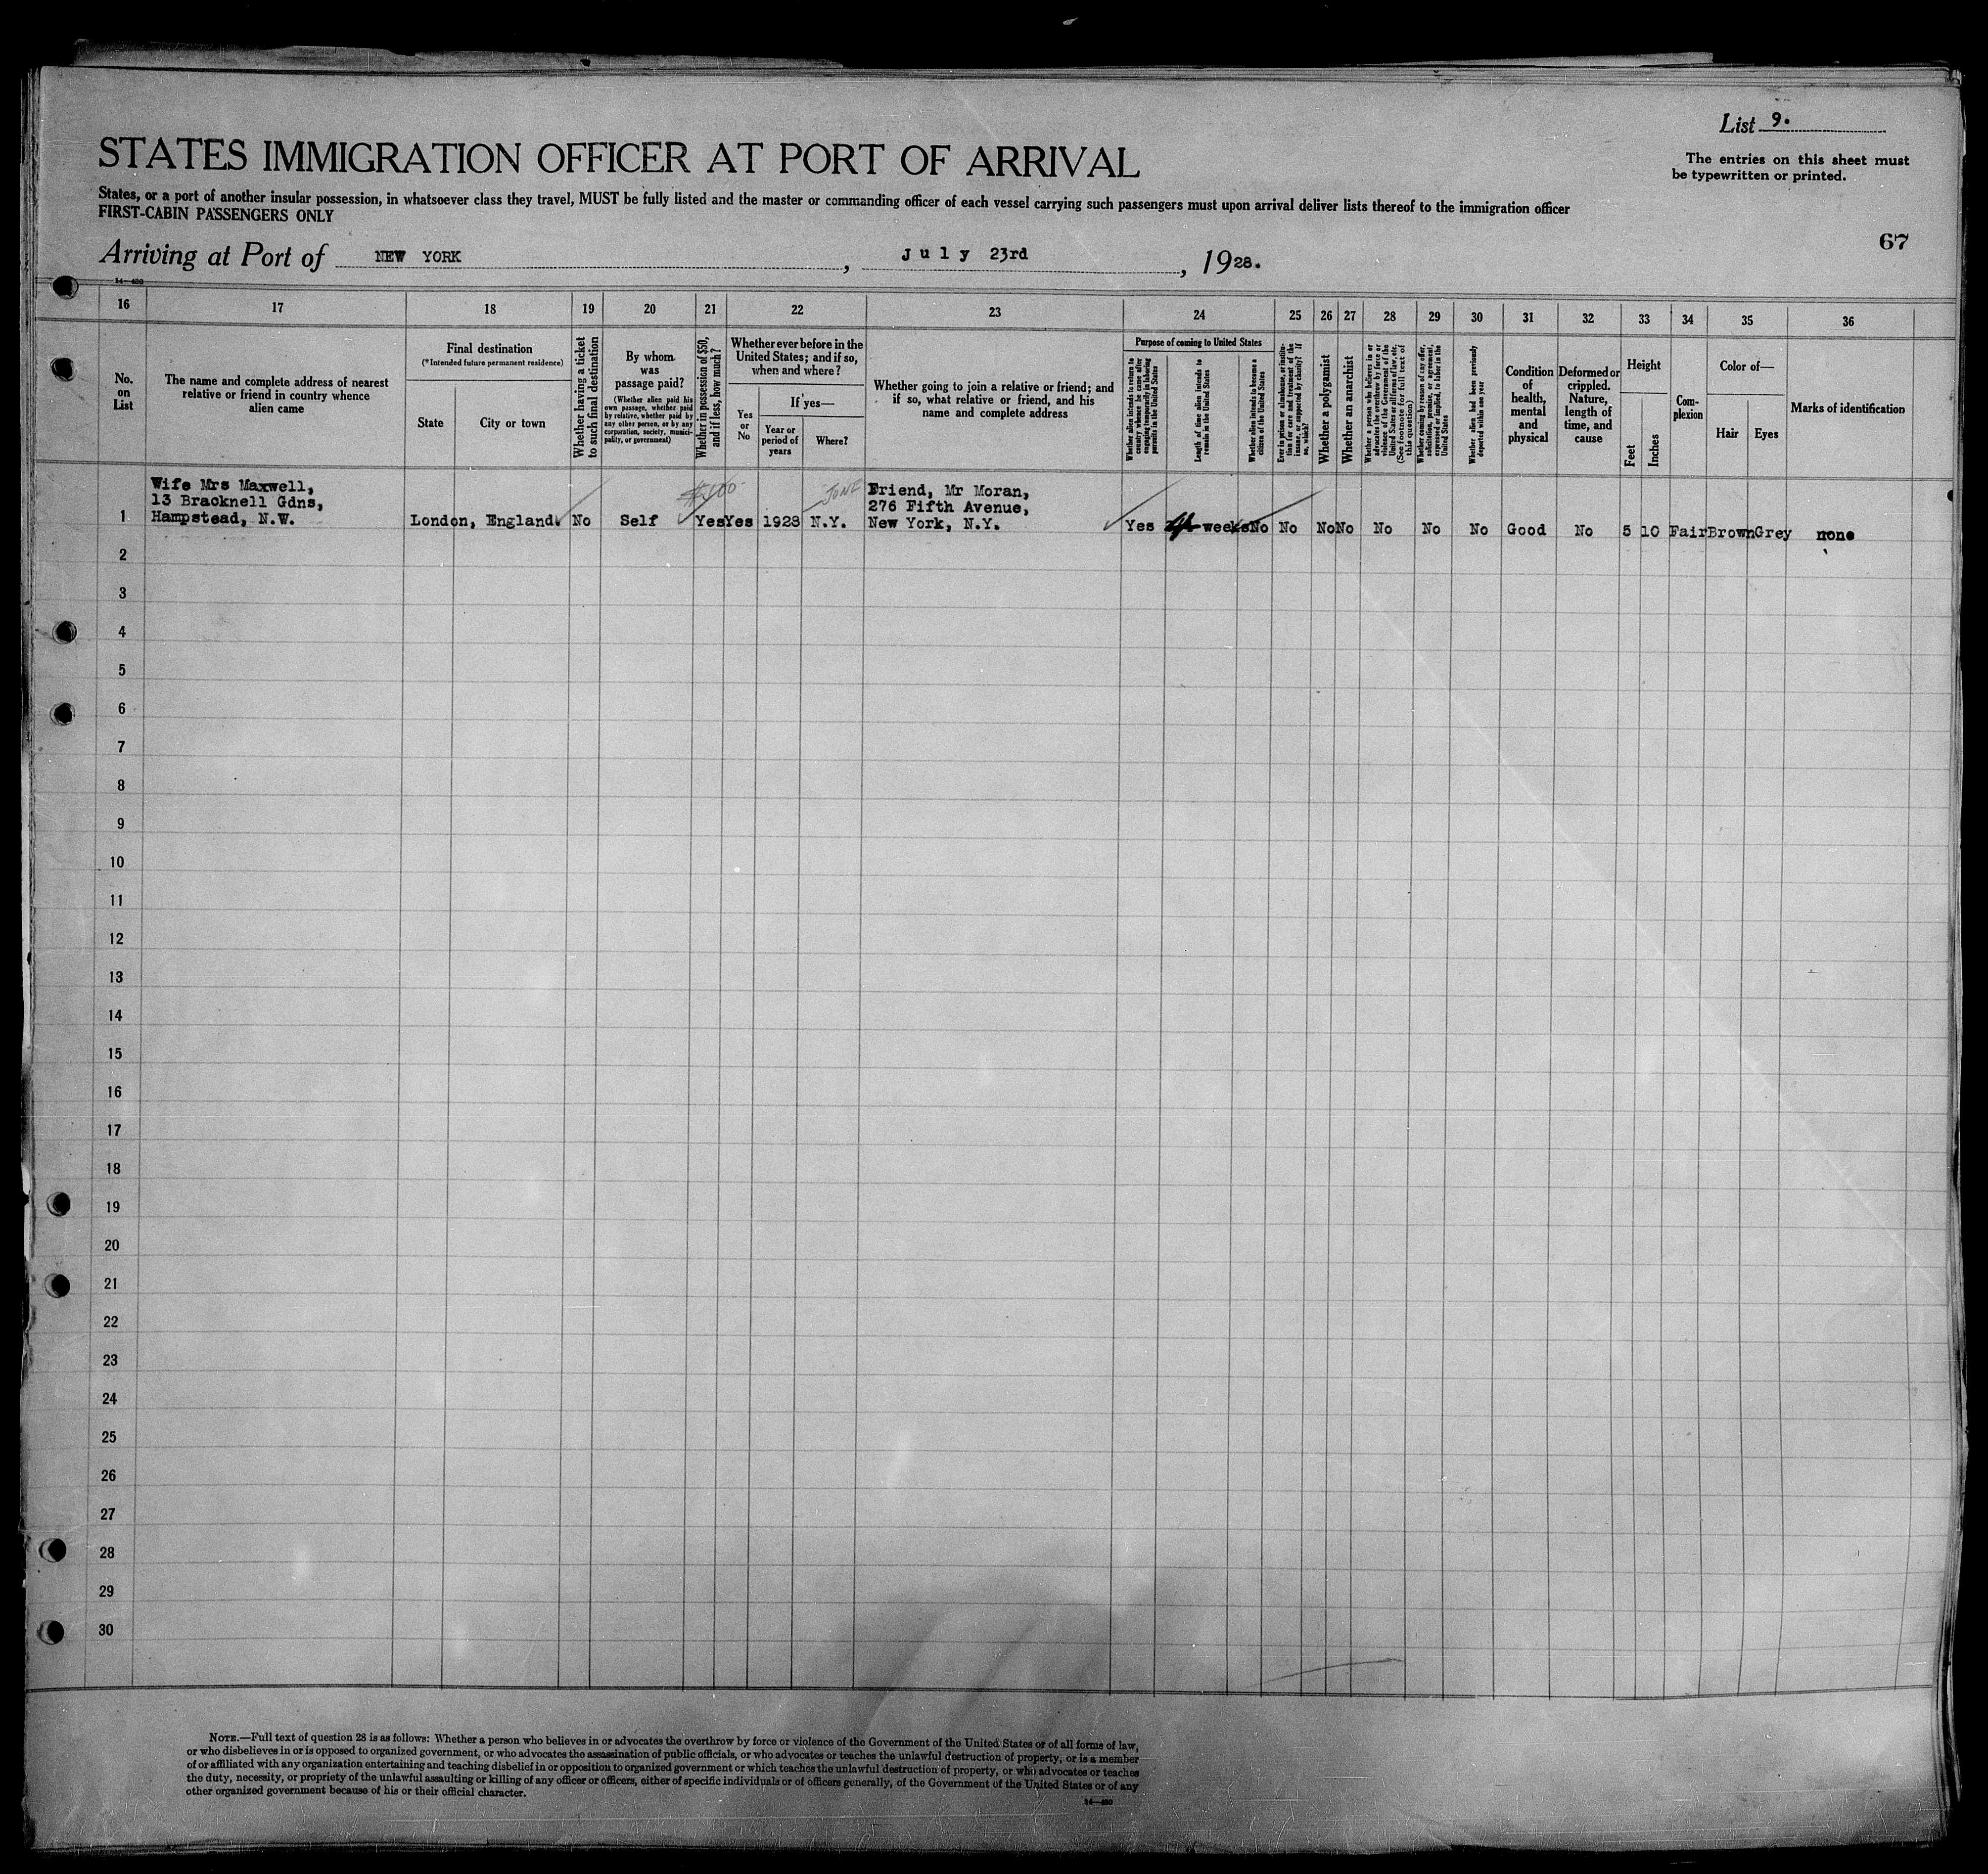 List 9.
STATES IMMIGRATION OFFICER AT PORT OF ARRIVAL
The entries on this sheet must
be typewritten or printed.
States, or a port of another insular possession, in whatsoever class they travel, MUST be fully listed and the master or commanding officer of each vessel carrying such passengers must upon arrival deliver lists thereof to the immigration officer
FIRST-CABIN PASSENGERS ONLY
67
Arriving at Port of NEW YORK, July 23rd, 1928.
14—430
16 17 18 19 20 21 22 23 24 25 26 27 28 29 30 31 32 33 34 35 36
No.
on
List
The name and complete address of nearest
relative or friend in country whence
alien came
Final destination
(*Intended future permanent residence)
State
City or town
Whether having a ticket
to such final destination
By whom
was
passage paid?
(Whether alien paid his
own passage, whether paid
by relative, whether paid by
any other person, or by any
corporation, society, munici-
pality, or government)
Whether in possession of $50,
and if less, how much?
Whether ever before in the
United States; and if so,
when and where?
Yes
or
No
If yes—
Year or
period of
years
Where?
Whether going to join a relative or friend; and
if so, what relative or friend, and his
name and complete address
Purpose of coming to United States
Whether alien intends to return to
country whence he came after
engaging temporarily in laboring
pursuits in the United States
Length of time alien intends to
remain in the United States
Whether alien intends to become a
citizen of the United States
Ever in prison or almshouse, or institu-
tion for care and treatment of the
insane, or supported by charity? If
so, which?
Whether a polygamist
Whether an anarchist
Whether a person who believes in or
advocates the overthrow by force or
violence of the Government of the
United States or all forms of law, etc.
(See footnote for full text of
this question)
Whether coming by reason of any offer,
solicitation, promise, or agreement,
expressed or implied, to labor in the
United States
Whether alien had been previously
deported within one year
Condition
of
health,
mental
and
physical
Deformed or
crippled.
Nature,
length of
time, and
cause
Height
Feet
Inches
Com-
plexion
Color of—
Hair
Eyes
Marks of identification
Wife Mrs Maxwell,
13 Bracknell Gdns,
Hampstead, N.W.
$500
JUNE
Friend, Mr Moran,
276 Fifth Avenue,
New York, N.Y.
1 London, England. No Self Yes Yes 1928 N.Y. Yes weeks No No No No No No No Good No 5 10 Fair Brown Grey none
2
3
4
5
6
7
8
9
10
11
12
13
14
15
16
17
18
19
20
21
22
23
24
25
26
27
28
29
30
NOTE.—Full text of question 28 is as follows: Whether a person who believes in or advocates the overthrow by force or violence of the Government of the United States or of all forms of law,
or who disbelieves in or is opposed to organized government, or who advocates the assassination of public officials, or who advocates or teaches the unlawful destruction of property, or is a member
of or affiliated with any organization entertaining and teaching disbelief in or opposition to organized government or which teaches the unlawful destruction of property, or who advocates or teaches
the duty, necessity, or propriety of the unlawful assaulting or killing of any officer or officers, either of specific individuals or of officers generally, of the Government of the United States or of any
other organized government because of his or their official character.
14—430